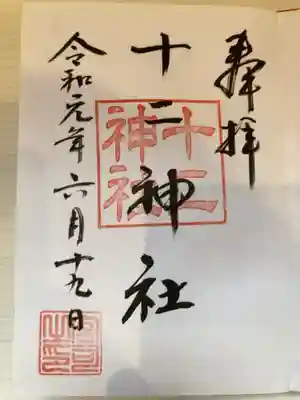 奉拝
十二神社
十二神社
令和元年六月十九日
宮司之印